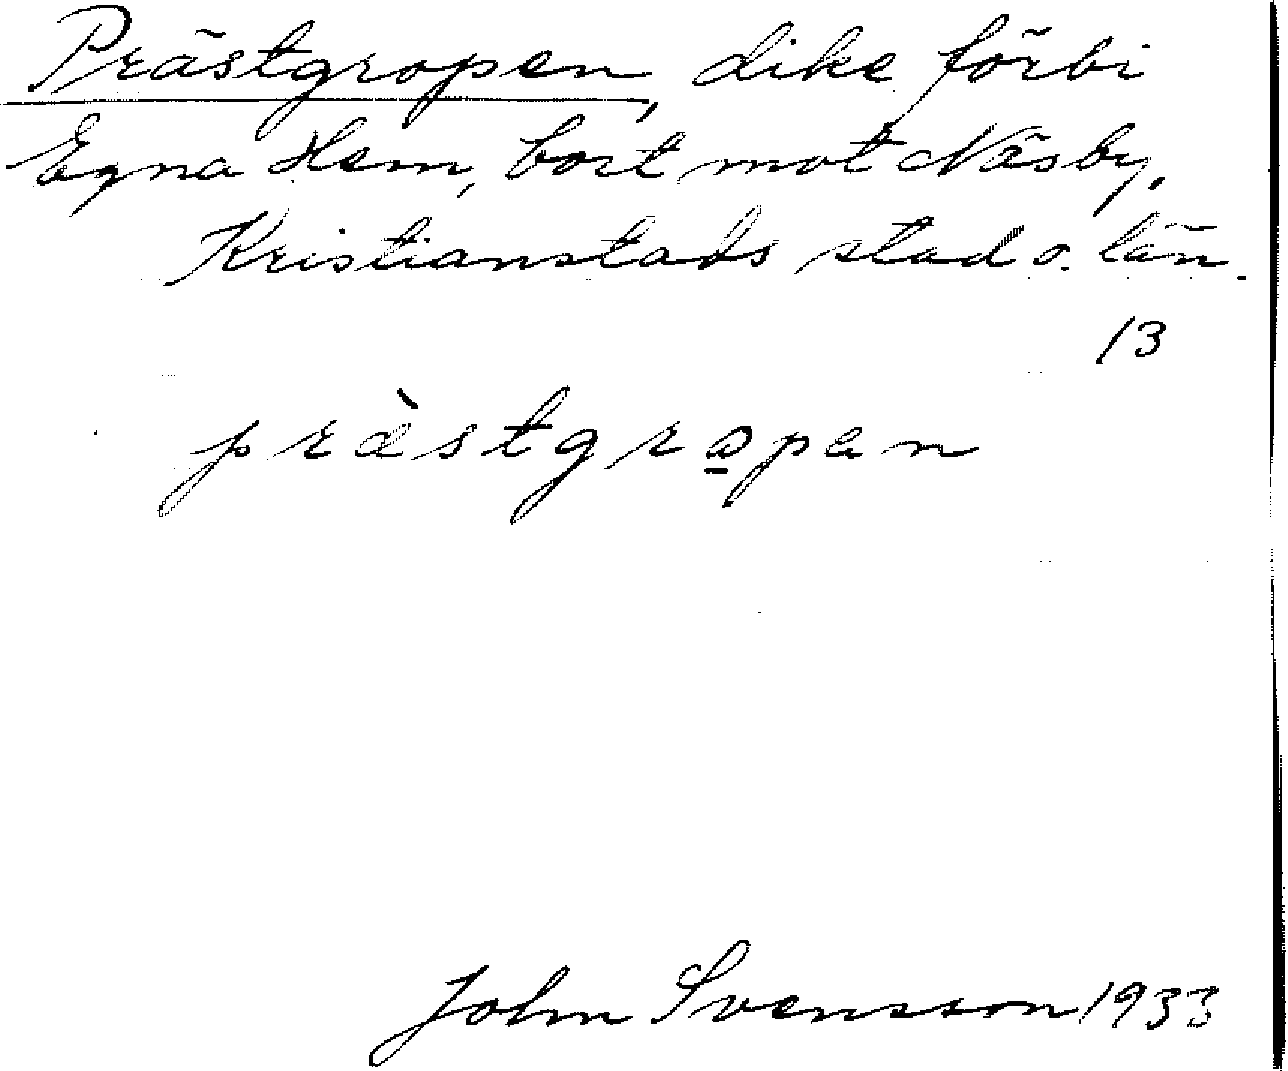 Prästgropen, dike förbi
Egna Hem, bort mot Näsby,
Kristianstads stad o. län.
13
præ̀stgro̲pen
John Svensson 1933